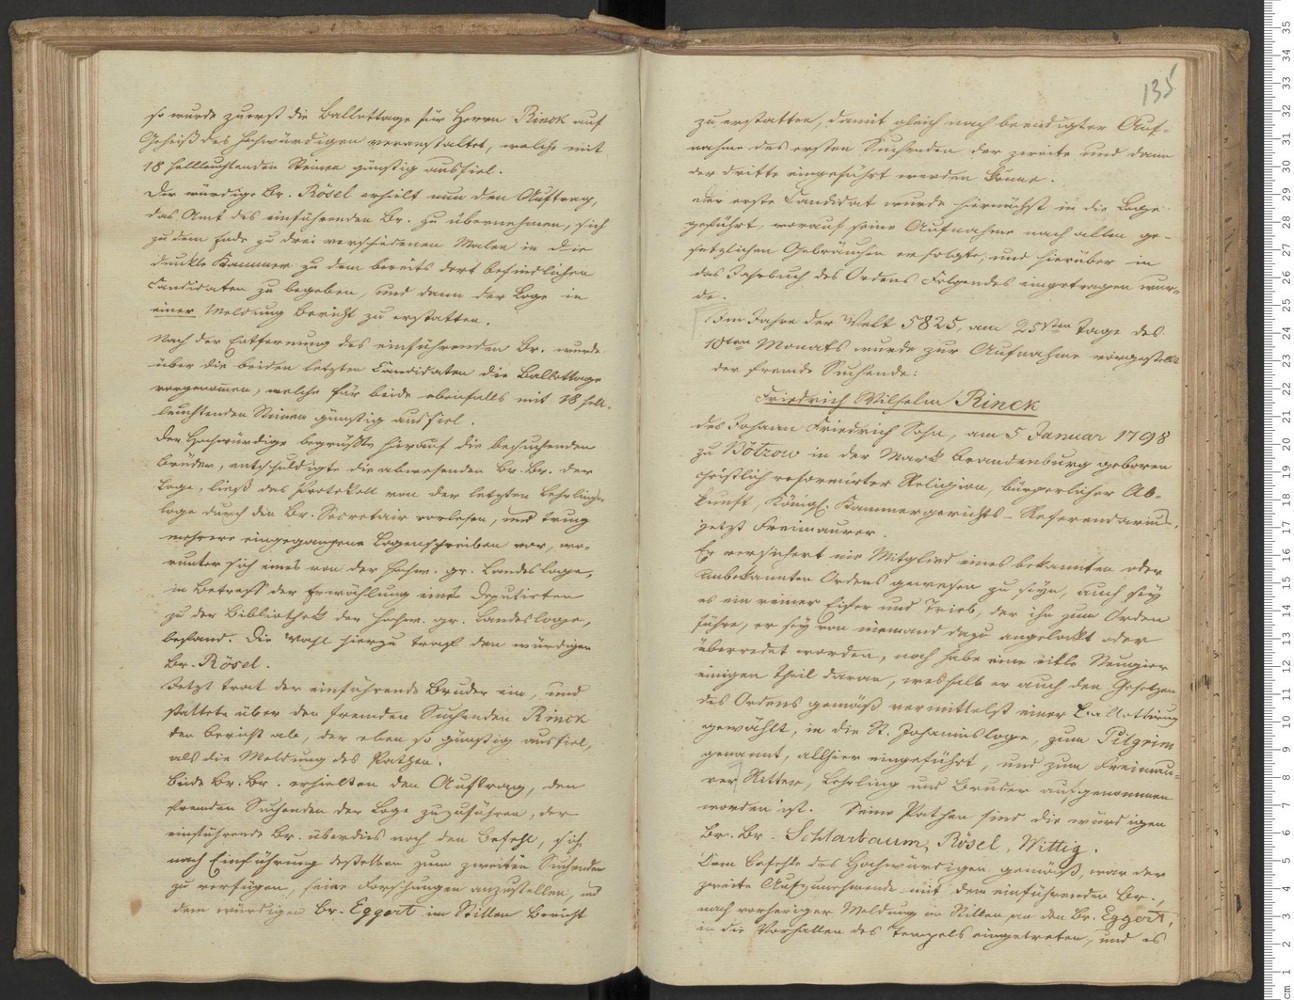 so wurde zuerst die Ballottage für Herrn Rinck auf
Geheiß des Hochwürdigen veranstaltet, welche mit
18 hellleuchtenden Steinen günstig ausfiel.
Der würdige Br. Rösel erhielt nun den Auftrag,
das Amt des einführenden Br. zu übernehmen, sich
zu dem Ende zu drei verschiedenen Malen in die
dunkle Kammer zu dem bereits dort befindlichen
Candidaten zu begeben, und dann der Loge in
einer Meldung Bericht zu erstatten.
Nach der Entfernung des einführenden Br. wurde
über die beiden letzten Candidaten die Ballottage
vorgenommen, welche für beide ebenfalls mit 18 hell-
leuchtenden Steinen günstig ausfiel.
Der Hochwürdige begrüßte hierauf die besuchenden
Brüder, entschuldigte die abwesenden Br. Br. der
Loge, ließ das Protokoll von der letzten Lehrlings-
loge durch den Br. Secretair vorlesen, und trug
mehrere eingegangene Logenschreiben vor, wo-
runter sich eines von der hochw. gr. Landesloge,
in Betreff der Erwählung eines Deputirten
zu der Bibliothek der hochw. gr. Landesloge,
befand. Die Wahl hierzu traf den würdigen
Br. Rösel.
Jetzt trat der einführende Bruder ein, und
stattete über den fremden Suchenden Rinck
den Bericht ab, der eben so günstig ausfiel,
als die Meldung des Pathen.
Beide Br. Br. erhielten den Auftrag, den
fremden Suchenden der Loge zuzuführen, der
einführende Br. überdies noch den Befehl, sich
nach Einführung desselben zum zweiten Suchenden
zu verfügen, seine Forschungen anzustellen, und
dem würdigen Br. Eggert im Stillen Bericht
135
zu erstatten, damit gleich nach beendigter Auf-
nahme des ersten Suchenden der zweite und dann
der dritte eingeführt werden könne.
Der erste Candidat wurde hiernächst in die Loge
geführt, worauf seine Aufnahme nach allen ge-
setzlichen Gebräuchen erfolgte, und hierüber in
das Jahrbuch des Ordens Folgendes eingetragen wur-
de.
Im Jahre der Welt 5825, am 25sten Tage des
10ten Monats wurde zur Aufnahme vorgestellt
der fremde Suchende:
Friedrich Wilhelm Rinck
des Johann Friedrich Sohn, am 5 Januar 1798
zu Bötzow in der Mark Brandenburg geboren
christlich reformirter Religion, bürgerlicher Ab-
kunft, Königl. Kammergerichts-Referendarius,
jetzt Freimaurer.
Er versichert nie Mitglied eines bekannten oder
unbekannten Ordens gewesen zu seyn, auch sey
es ein reiner Eifer und Trieb, der ihn zum Orden
führe, er sey von niemand dazu angelockt oder
überredet worden, noch habe eine eitle Neugier
einigen Theil daran, weshalb er auch den Gesetzen
des Ordens gemäß vermittelst einer Ballottirung
gewählt, in die St. Johannisloge, zum Pilgrim
genannt, allhier eingeführt, und zum Freimau-
rer Ritter, Lehrling und Bruder aufgenommen
worden ist. Seine Pathen sind die würdigen
Br. Br. Schlarbaum, Rösel, Wittig.
Dem Befehle des Hochwürdigen gemäß, war der
zweite Aufzunehmende mit dem einführenden Br.,
nach vorheriger Meldung im Stillen an den Br. Eggert,
in die Vorhallen des Tempels eingetreten, und es